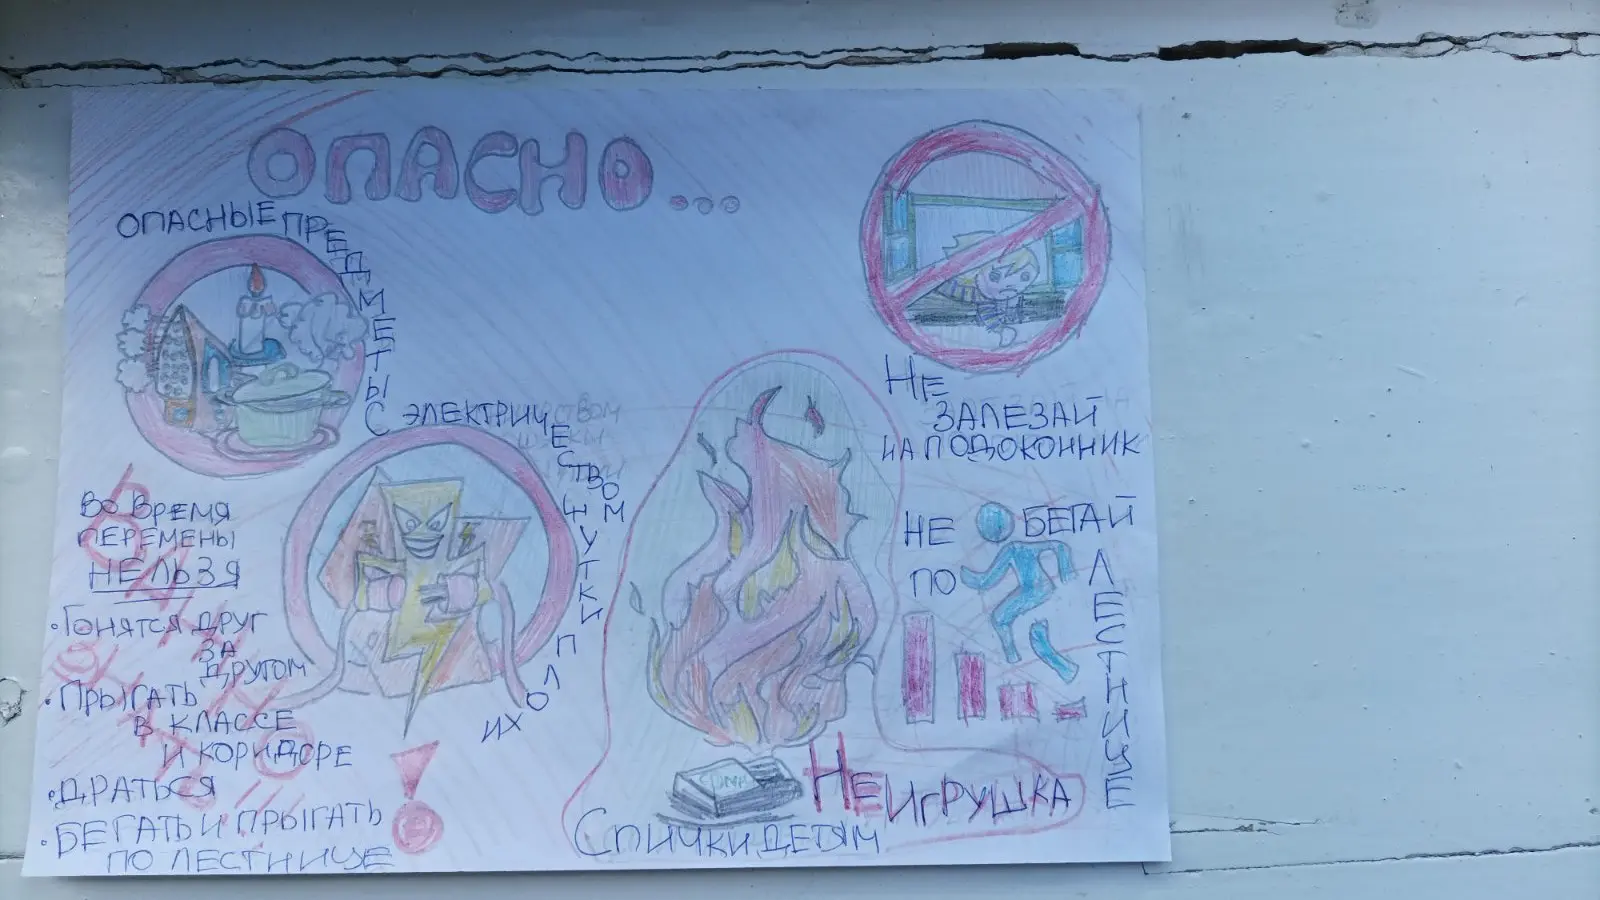 ОПАСНО...
ОПАСНЫЕ ПРЕДМЕТЫ
С ЭЛЕКТРИЧЕСТВОМ
ШУТКИ ПЛОХИ
ВО ВРЕМЯ
ПЕРЕМЕНЫ
НЕЛЬЗЯ
•ГОНЯТСЯ ДРУГ
ЗА
ДРУГОМ
•ПРЫГАТЬ
В КЛАССЕ
И КОРИДОРЕ
•ДРАТЬСЯ
•БЕГАТЬ И ПРЫГАТЬ
ПО ЛЕСТНИЦЕ
!
СПИЧКИ ДЕТЯМ
НЕ ИГРУШКА
НЕ
ЗАЛЕЗАЙ
НА ПОДОКОННИК
НЕ БЕГАЙ
ПО ЛЕСТНИЦЕ